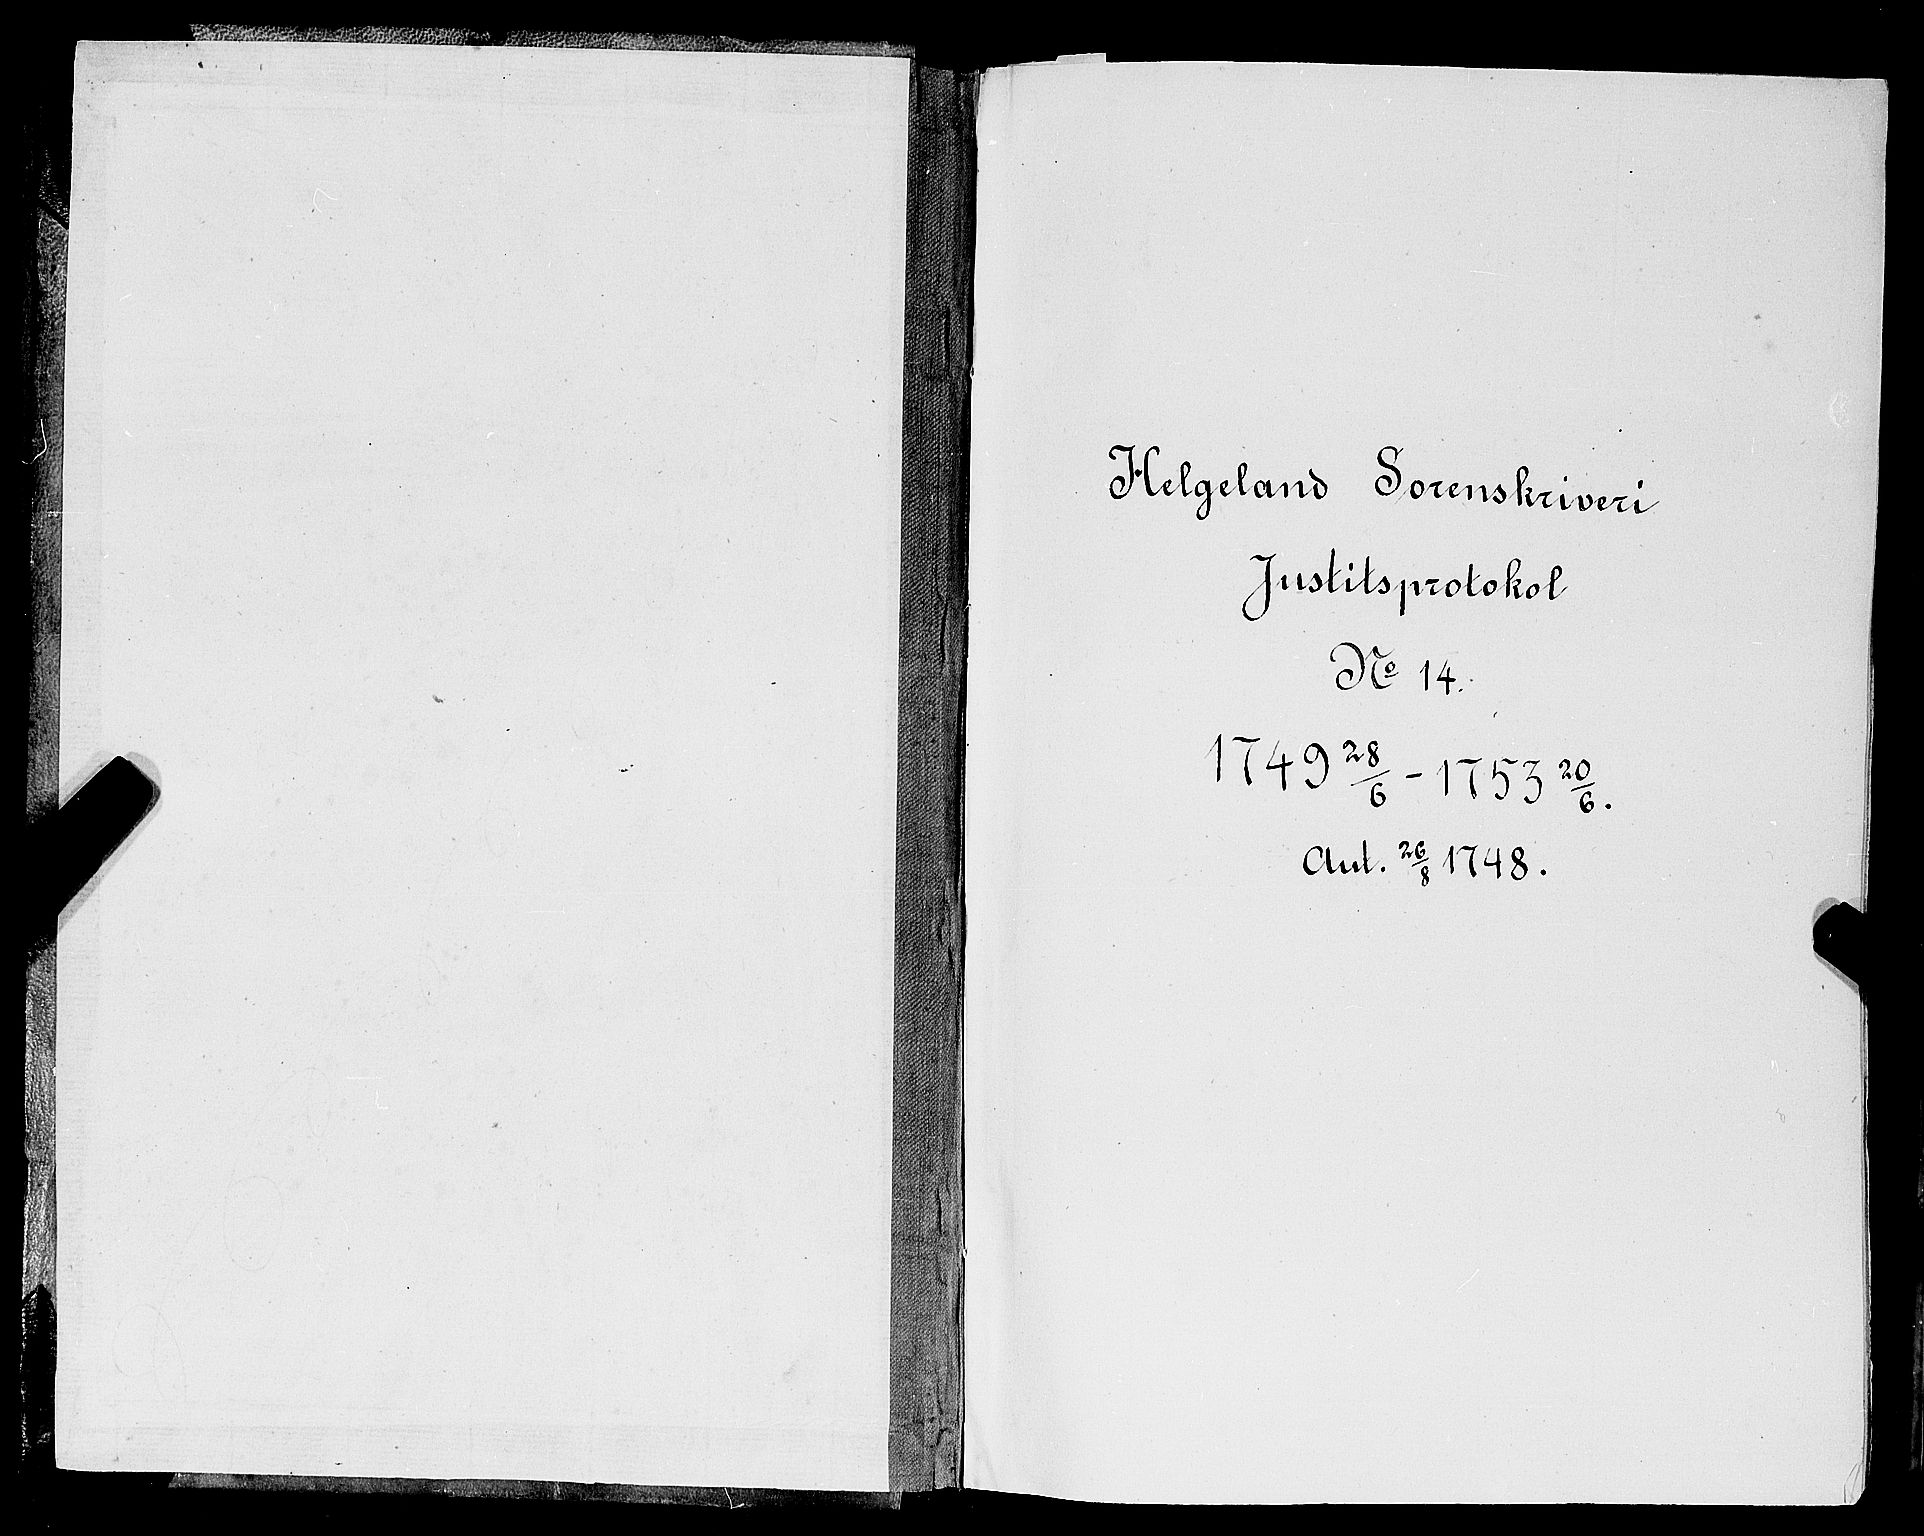 Helgeland Sorenskriveri
Justitsprotokol
No 14.
1749 28/6 - 1753 20/6.
Aut. 26/8 1748.